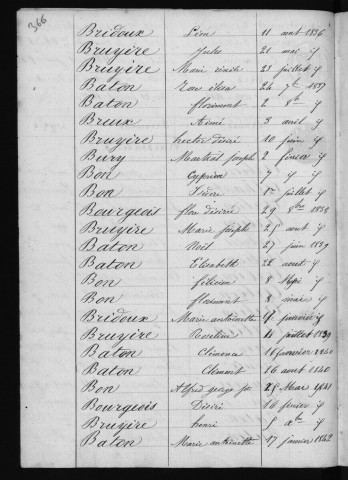 366
Bridoux Léon 11 aout 1836
Bruyère Jules 21 mai if
Bruyère Marie 23 juillet if
Baton 26 7bre 1837
Baton florimont 2 8b if
Breux Aimé 3 avril if
Bruyère hector désiré 10 juin if
Bury Martial joseph 2 février if
Bon Cyprien 7 if if
Bon Isidore 1er juillet if
Bourgeois flore désirée 29 8bre 1838
Bruyère Marie joseph 25 aout if
Baton Noël 27 juin 1839
Baton Elisabeth 22 aout if
Bon félicien 8 if
Bon florimont 8 mai if
Bridoux Marie antoinette janvier if
Bruyère Roseline 11 juillet 1839
Baton Clémence 16 février 1840
Baton Clément 16 aout 1840
Bon Alfred 25 Mars 1841
Bourgeois Désiré 16 février if
Bruyère henri 5 Xbre if
Baton Marie antoinette 17 janvier 1842